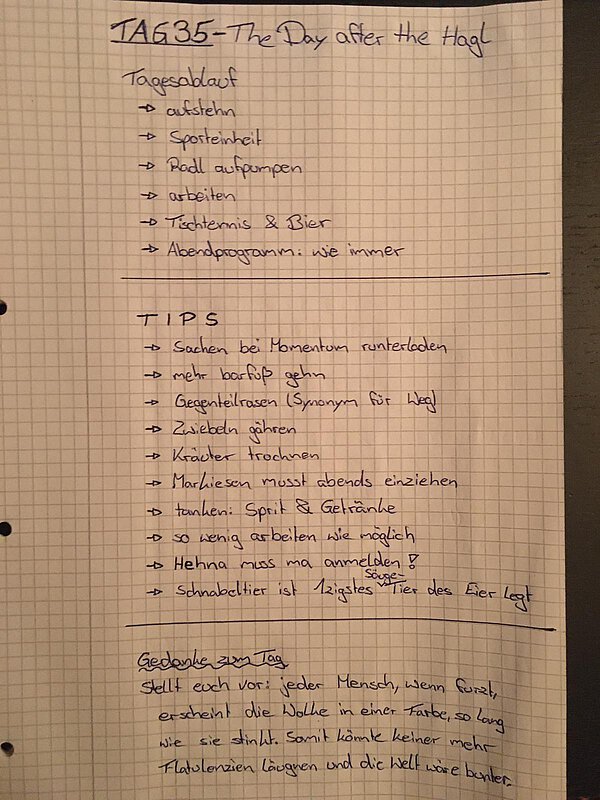 TAG 35 - The Day after the Hagl
Tagesablauf
→ aufstehn
→ Sporteinheit
→ Radl aufpumpen
→ arbeiten
→ Tischtennis & Bier
→ Abendprogramm: wie immer
TIPS
→ Sachen bei Momentum runterladen
→ mehr barfuß gehn
→ Gegenteilrasen (Synonym für Weg)
→ Zwiebeln gähren
→ Kräuter trocknen
→ Markiesen musst abends einziehen
→ tanken: Sprit & Getränke
→ so wenig arbeiten wie möglich
→ Hehna muss ma anmelden!
→ Schnabeltier ist 1zigstes Säuge-Tier des Eier legt
Gedanke zum Tag
Stellt euch vor: jeder Mensch, wenn furzt,
erscheint die Wolke in einer Farbe, so lang
wie sie stinkt. Somit könnte keiner mehr
Flatulenzien läugnen und die Welt wäre bunter.